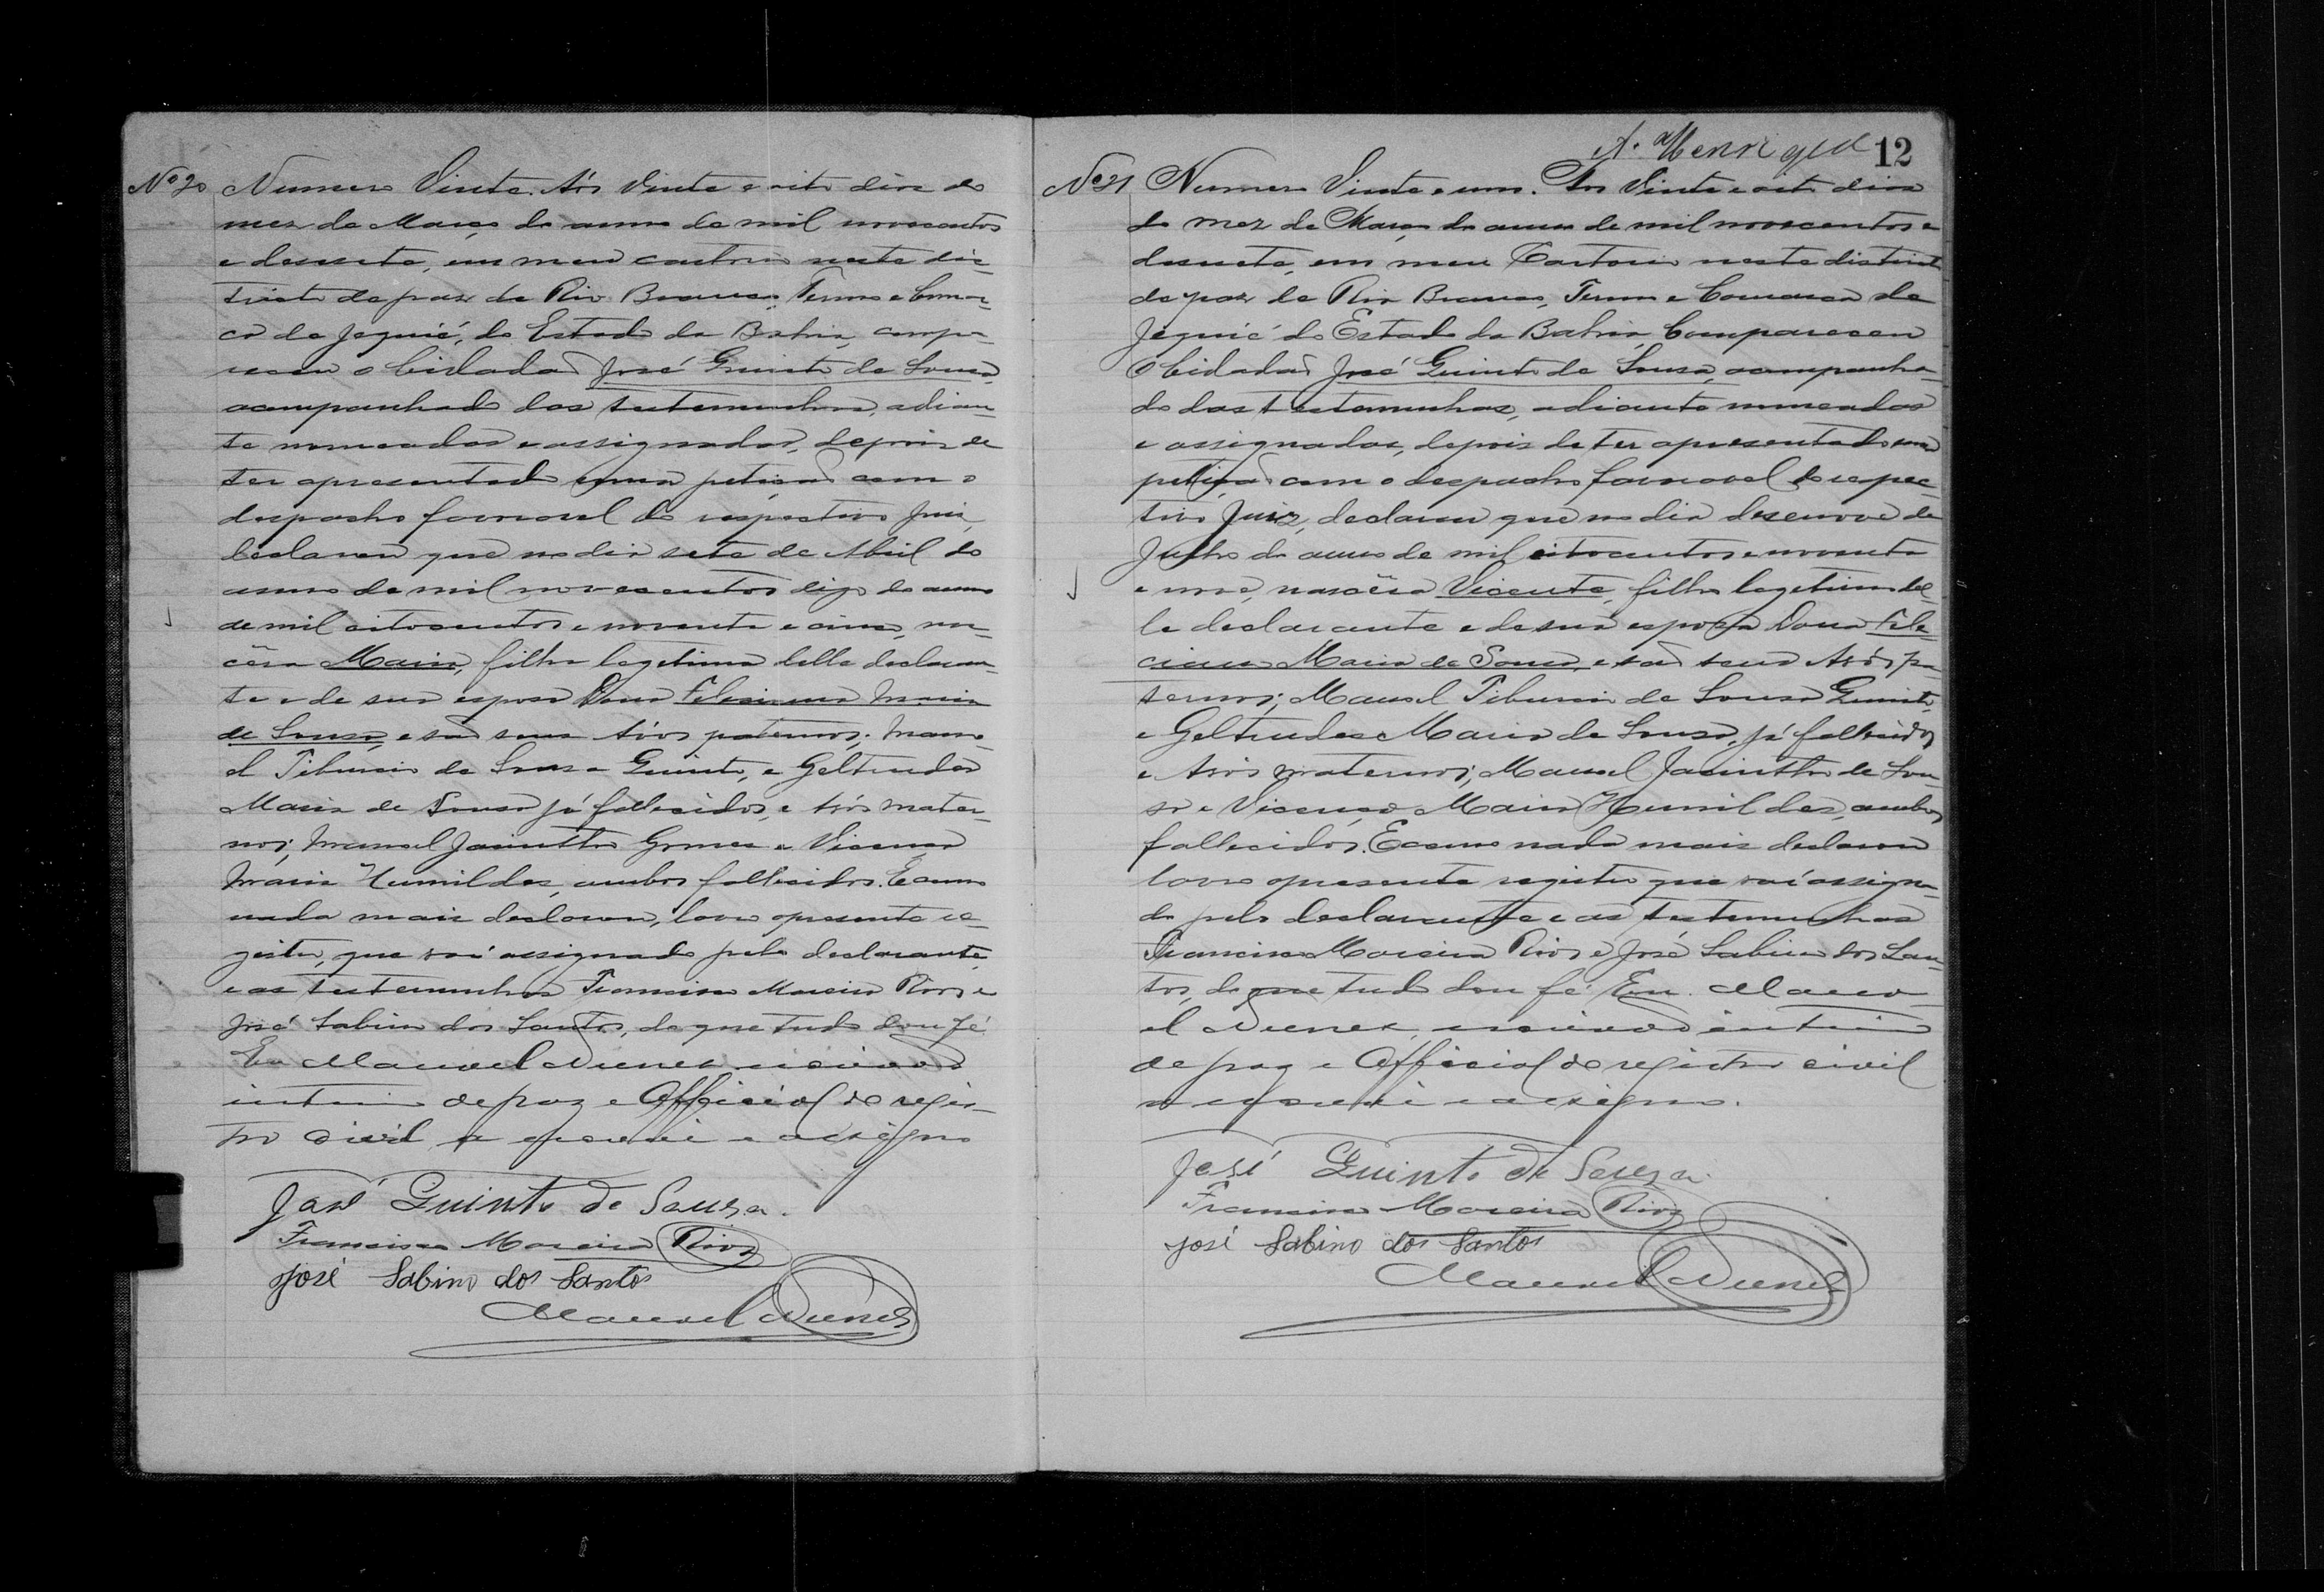 Nº 20 Numero Vinte. Aós vinte e oito dias do
mez de Março do anno de mil novecentos
e desesete, em meu cartorio neste dis-
tricto de paz de Rio Branco, Termo e Comar-
ca de Jequié, do Estado da Bahia, compa-
receu o Cidadaõ José Guinto de Sousa,
acompanhado das testemunhas, adian-
te nomeadas e assignadas, depois de
ter apresentado uma petiçaõ com o
despacho favoravel do respectivo Juiz,
declarou que no dia sete de Abril do
anno de mil novecentos digo do anno
de mil oitocentos e noventa e cinco, nas-
cêra Maria, filha legitima delle declaran-
te e de sua esposa Dona Feliciana Maria
de Sousa, e saõ seus Avós paternos; Mano-
el Tiburcio de Sousa Guinto, e Geltrudes
Maria de Sousa já fallecidos, e Avós mater-
nos; Manoel Jacintho Gomes e Vicença
Maria Humildes, ambos fallecidos. E como
nada mais declarou, lavro o presente re-
gistro, que vai assignado pelo declarante,
e as testemunhas Francisco Moreira Rios e
José Sabino dos Santos, do que tudo dou fé
Eu Manoel Nunes escrivaõ
interino de paz e Official do regis-
tro civil o escrevi e assigno
José Guinto de Souza.
Francisco Moreira Rios
José Sabino dos Santos
Manoel Nunes
A. Henriques 12
Nº 21 Numero Vinte e um. Aos Vinte e oito dias
do mez de Março do anno de mil novecentos e
desesete, em meu Cartorio neste districto
de paz de Rio Branco, Termo e Comarca de
Jequié do Estado da Bahia, Compareceu
O Cidadaõ José Guinto de Sousa, acompanha-
do das testemunhas, adiante nomeadas
e assignadas, depois de ter apresentado uma
petiçaõ com o despacho favoravel do respec-
tivo Juiz, declarou que no dia desenove de
Julho do anno de mil oitocentos e noventa
e nove, nascêra Vicente, filho legitimo del-
le declarante e de sua esposa Dona Feli-
ciana Maria de Sousa, e saõ seus Avós pa-
ternos; Manoel Tiburcio de Sousa Guinto,
e Geltrudes Maria de Sousa, já fallecidos
e Avós maternos; Manoel Jacintho de Sou-
sa e Vicença Maria Humildes, ambos
fallecidos. E como nada mais declarou
lavro o presente registro que vai assigna-
do pelo declarante e as testemunhas
Francisco Moreira Rios e José Sabino dos San-
tos, do que tudo dou fé. Eu Mano-
el Nunes, escrivaõ interino
de paz e Official do registro civil
o escrevi e assigno.
José Guinto de Souza.
Francisco Moreira Rios
José Sabino dos Santos
Manoel Nunes